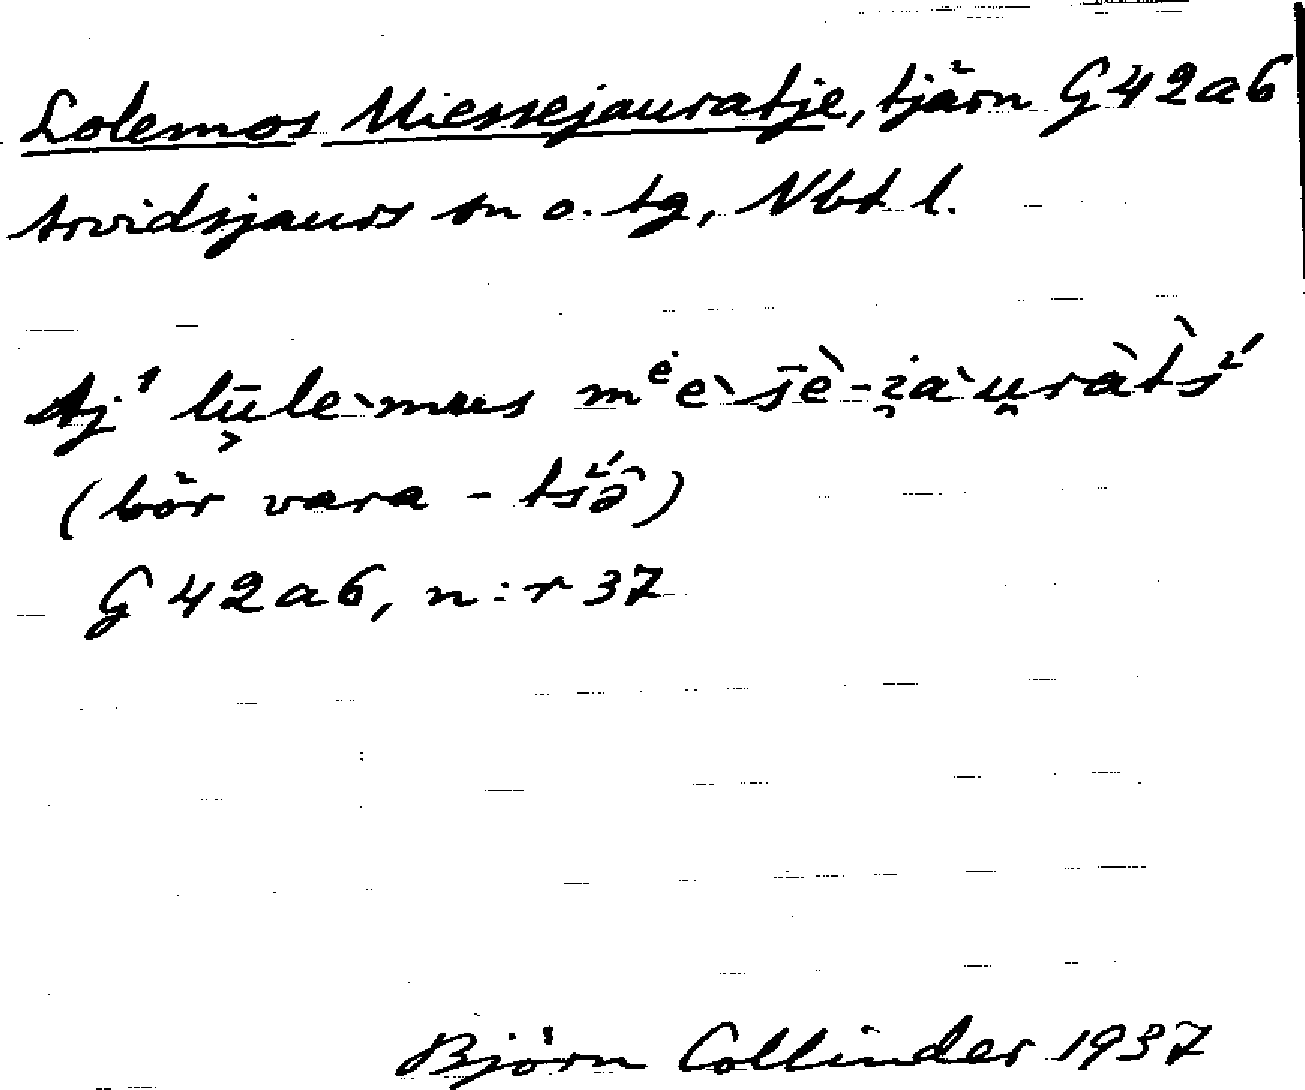 Lolemos Miessejauratje, tjärn G42a6
Arvidsjaurs sn o. tg, Nbt l.
Aj¹
(bör vara -
G 42a6, n:r 37
Björn Collinder 1937